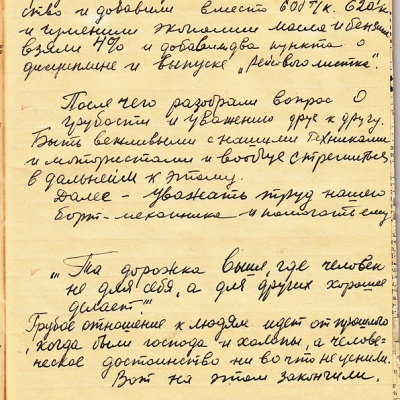 ство и добавили вместо 600 т/к. 620 т/к
и изменили экономии масла и бензина
взяли 4% и добавили два пункта о
дисциплине и выпуске „Рейсового листка".
После чего разобрали вопрос О
грубости и уважению друг к другу.
Быть вежливыми с нашими техниками
и мотористами и вообще стремиться
в дальнейшем к этому.
Далее – уважать труд нашего
борт-механика и помогать ему
„Та дорожка выше, где человек
не для себя, а для других хорошее
делает"
Грубое отношение к людям идет от прошлого
когда были господа и холопы, а челове-
ческое достоинство ни во что не ценили.
Вот на этом закончили.